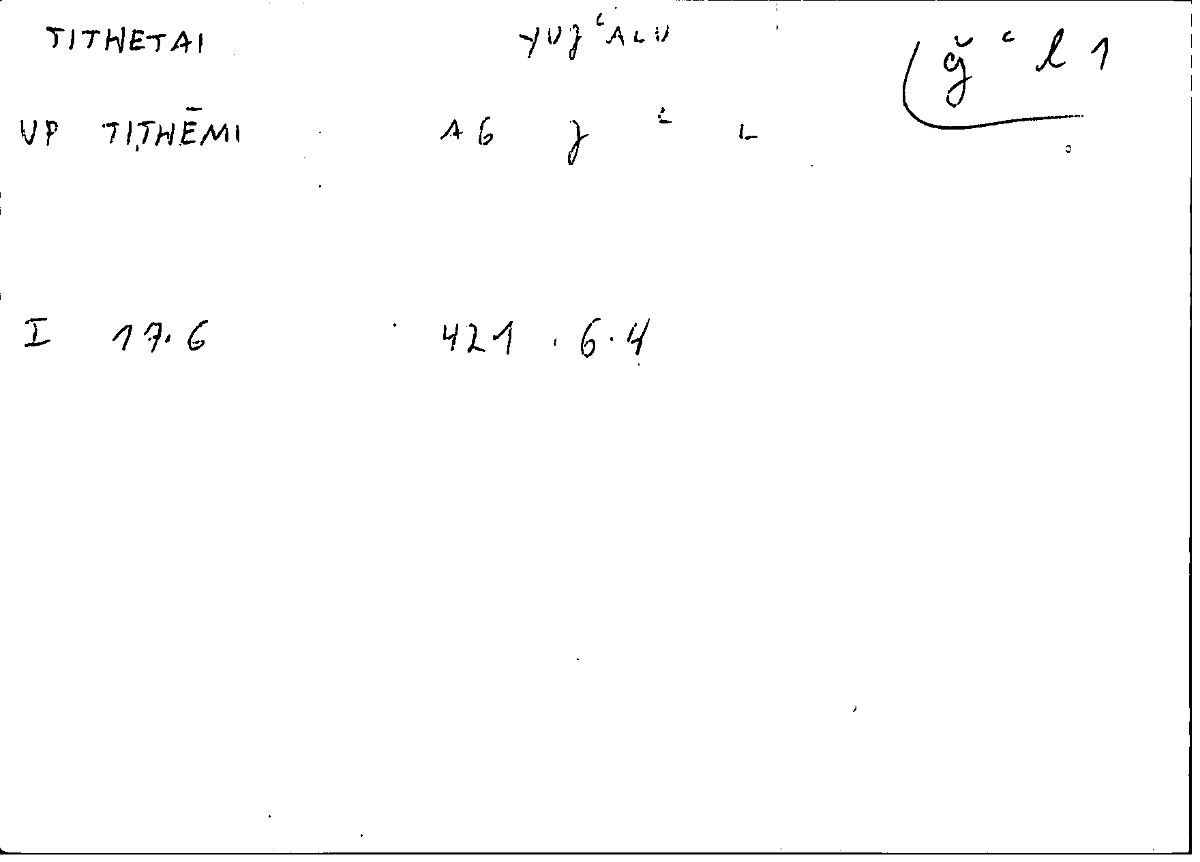 TITHETAI YUJʿALU ǧ ʿ l 1
VP TITHĒMI AG J ʿ L
I 17.6 421.6.4